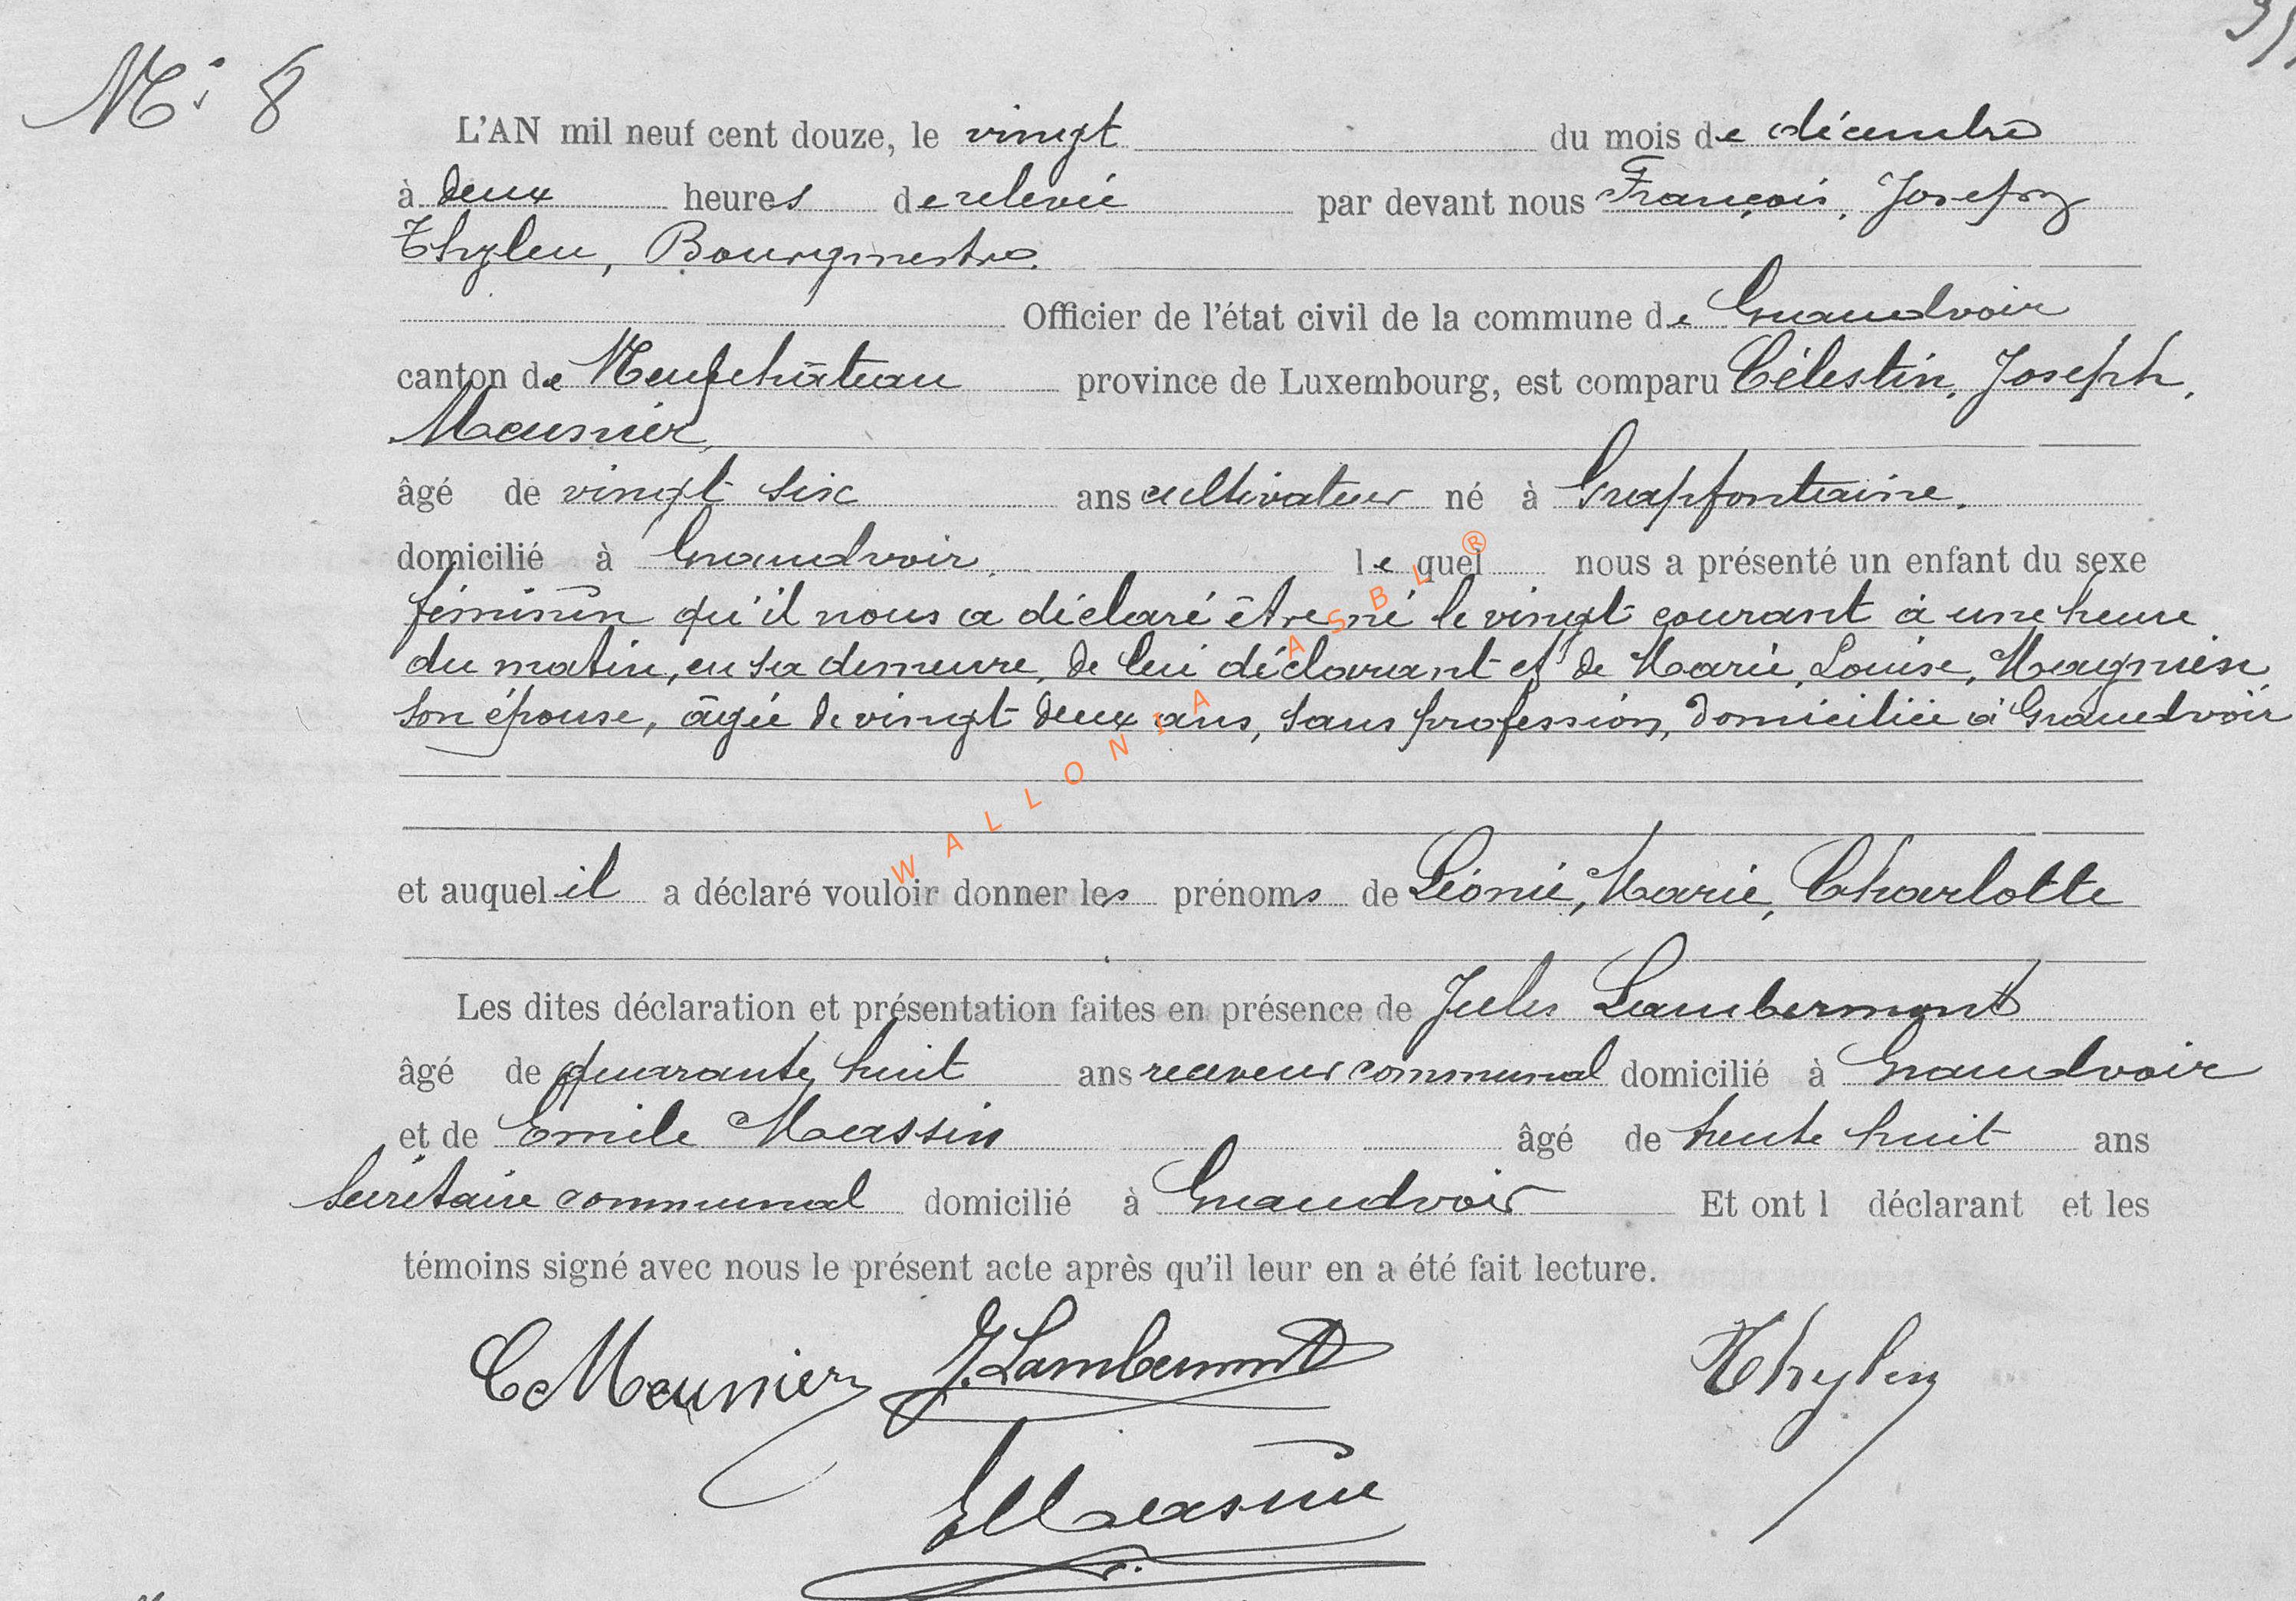 N° 8
L'AN mil neuf cent douze, le vingt du mois de décembre
à deux heures de relevée par devant nous François, Joseph
Thylen, Bourgmestre.
Officier de l'état civil de la commune de Grandvoir
canton de Neufchâteau province de Luxembourg, est comparu Célestin, Joseph,
Meunier,
âgé de vingt six ans cultivateur né à Grapfontaine.
domicilié à Grandvoir. le quel nous a présenté un enfant du sexe
féminin qu'il nous a déclaré être né le vingt courant à une heure
du matin, en sa demeure, de lui déclarant et de Marie, Louise, Magnien
son épouse, âgée de vingt deux ans, sans profession, domiciliée à Grandvoir
et auquel il a déclaré vouloir donner les prénoms de Léonie, Marie, Charlotte
Les dites déclaration et présentation faites en présence de Jules Lambermont
âgé de quarante huit ans receveur communal domicilié à Grandvoir
et de Emile Massin âgé de trente huit ans
Secrétaire communal domicilié à Grandvoir Et ont l déclarant et les
témoins signé avec nous le présent acte après qu'il leur en a été fait lecture.
C Meunier J. Lambermont Thylen
E Massin
WALLONIA ASBL ®